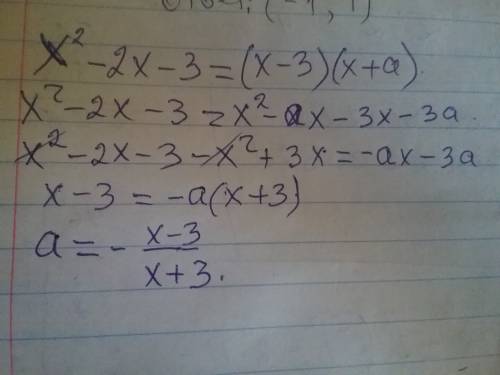 x² - 2x - 3 = (x - 3)(x + a).
x² - 2x - 3 = x² - ax - 3x - 3a.
x² - 2x - 3 - x² + 3x = -ax - 3a
x - 3 = -a(x + 3)
a = - x - 3 / x + 3.